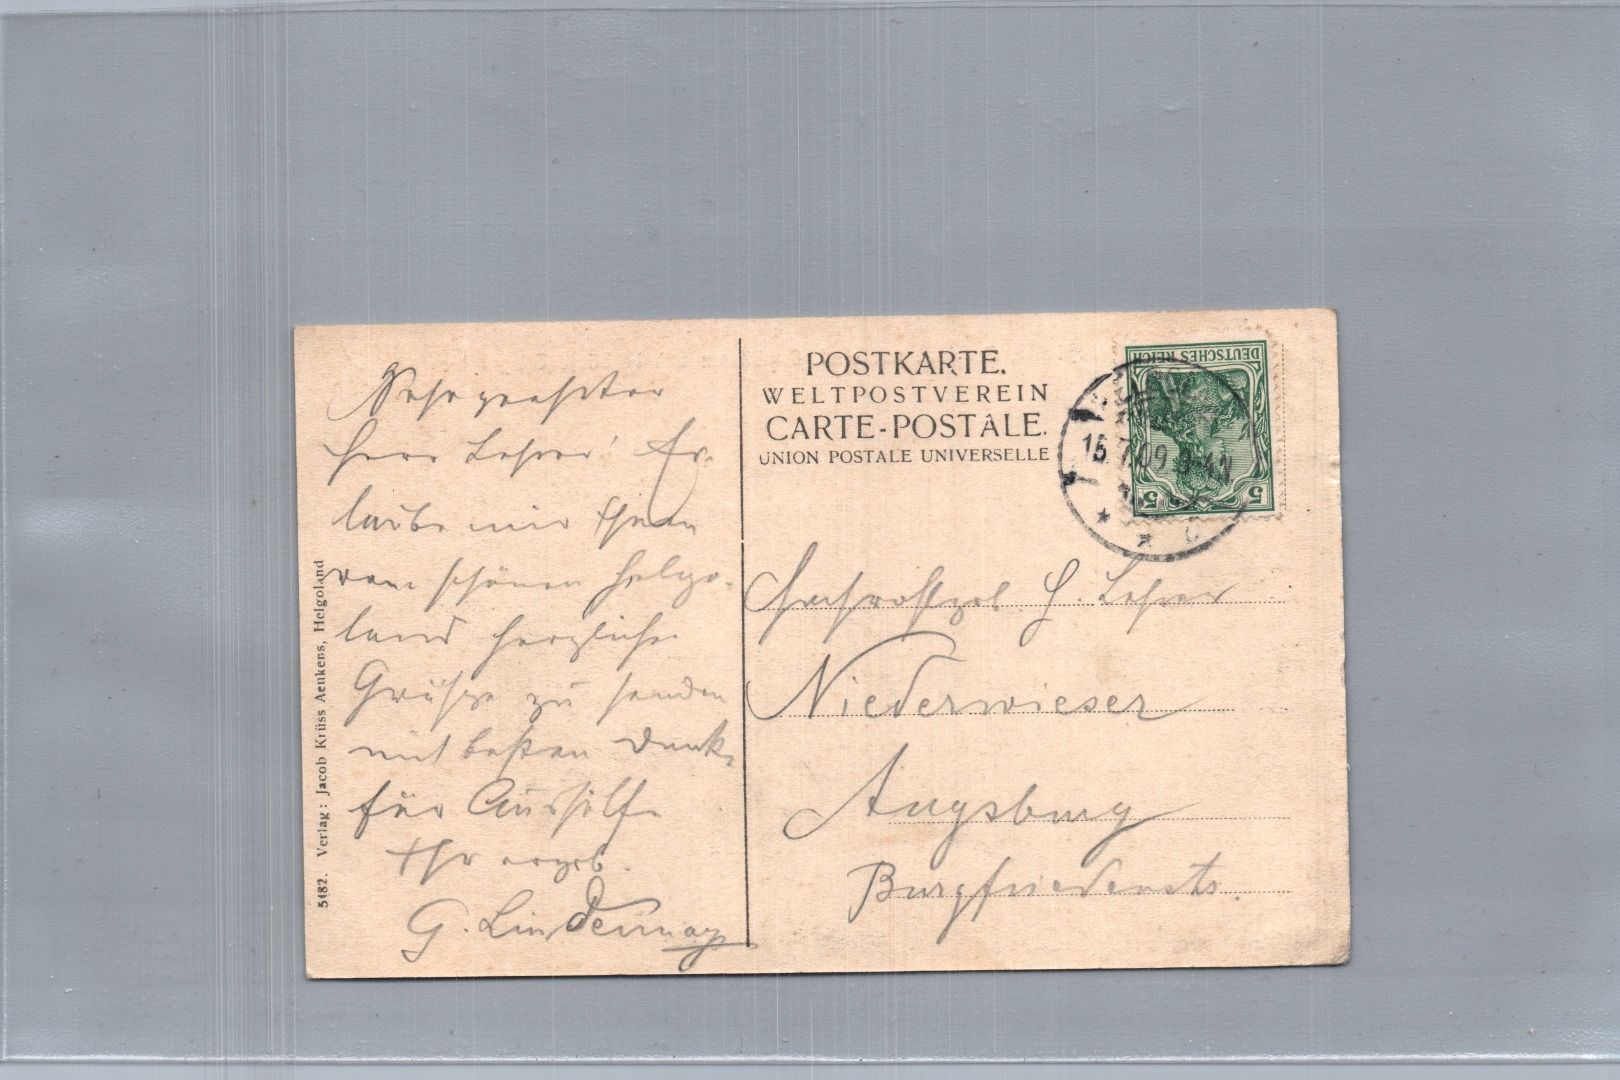 Sehr geehrter
Herr Lehrer! Er-
laube mir Ihnen
vom schönen Helgo-
land herzliche
Grüsze zu senden
mit besten Dank
für Aushilfe
Ihr ergeb.
G. Lindenmay
5182. Verlag: Jacob Krüss Aeukens, Helgoland
POSTKARTE.
WELTPOSTVEREIN
CARTE-POSTALE.
UNION POSTALE UNIVERSELLE
DEUTSCHES REICH
5 5
15.7.09
H. Lehrer
Niederwieser
Augsburg
Burgfriedenstr.